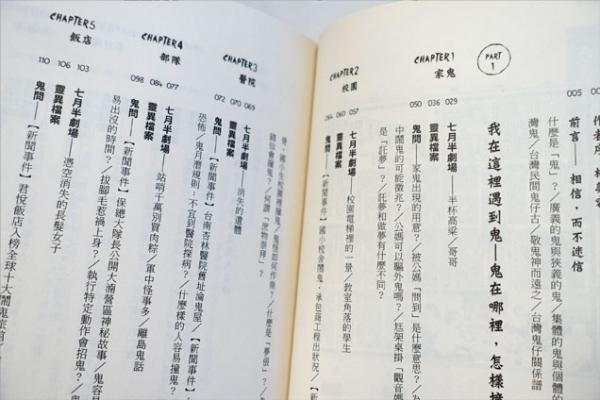 005
前言——相信，而不迷信
什麼是「鬼」？／廣義的鬼與狹義的鬼／集體的鬼與個體的
灣鬼／台灣民間鬼仔古／敬鬼神而遠之／台灣鬼仔關係譜
PART 1
我在這裡遇到鬼——鬼在哪裡，怎樣
CHAPTER 1
家鬼
029
七月半劇場——半杯高粱／哥哥
036
靈異檔案
050
鬼問——鬼家鬼出現的用意？／被公媽「問到」是什麼意思？／
中鬧鬼的可能徵兆？／公媽可以驅外鬼嗎？／尪架桌掛「觀音媽
是「託夢」？／託夢和做夢有什麼不同？
CHAPTER 2
校園
057
七月半劇場——校園電梯裡的一景／教室角落的學生
060
靈異檔案
064
鬼問——【新聞事件】國小校舍鬧鬼，承包商工程出狀況／
CHAPTER 3
醫院
069
七月半劇場——消失的遺體
070
靈異檔案
072
鬼問——【新聞事件】台南杏林醫院舊址淪鬼屋／【新聞事件】
恐怖／鬼月磨規則：不宜到醫院探病？／什麼樣的人容易撞鬼？
CHAPTER 4
部隊
077
七月半劇場——站哨千萬別買肉粽／軍中怪事多／離島鬼話
084
靈異檔案
098
鬼問——【新聞事件】保總大隊長公開大湳營區神秘故事／鬼容
易出沒的時間？／拔腳毛惹禍上身？／執行特定動作會招鬼？
CHAPTER 5
飯店
103
七月半劇場——憑空消失的長髮女子
106
靈異檔案
110
鬼問——【新聞事件】君悅飯店入榜全球十大鬧鬼旅館／